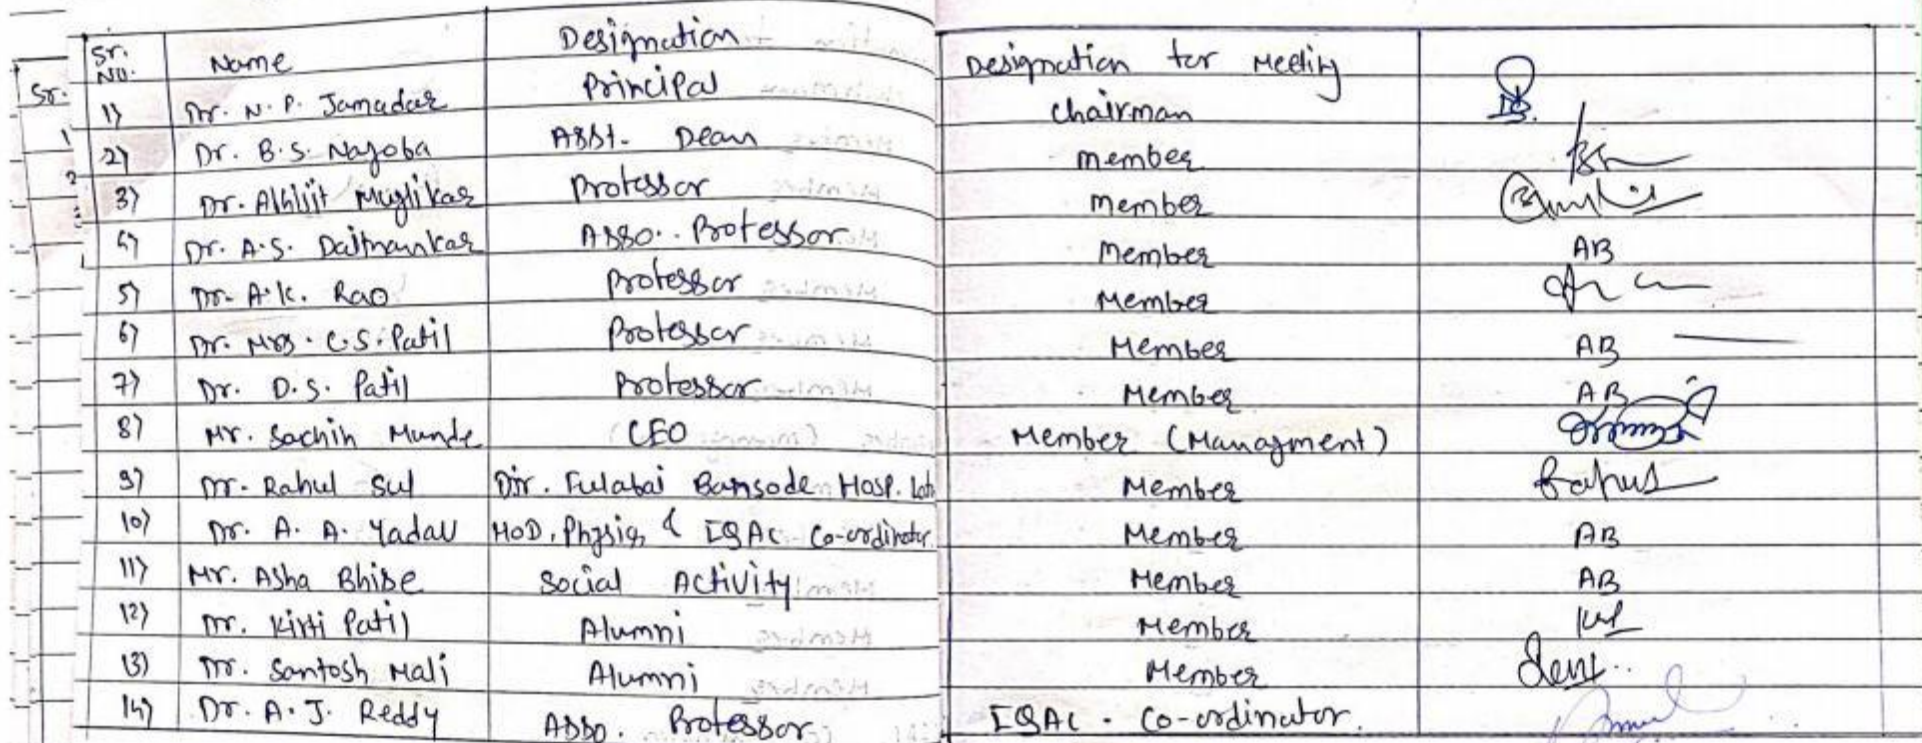 Sr. No. Name Designation Designation for Meeting
1) Dr. N. P. Jamadar Principal Chairman
2) Dr. B. S. Nagoba Asst. Dean member
3) Dr. Abhijit Muglikar Professor member
4) Dr. A. S. Daitnankar Asso. Professor Member AB
5) Dr. A. K. Rao Professor Member
6) Dr. Mrs. C. S. Patil Professor Member AB
7) Dr. D. S. Patil Professor Member AB
8) Mr. Sachin Munde CEO Member (Managment)
9) Dr. Rahul Sul Dir. Fulabai Bansode Hosp. Member Rahul
10) Dr. A. A. Yadav HoD, Physio, & IQAC Co-ordinator Member AB
11) Mr. Asha Bhise Social Activity Member AB
12) Dr. Kirti Patil Alumni Member
13) Dr. Santosh Mali Alumni Member
14) Dr. A. J. Reddy Asso. Professor IQAC - Co-ordinator.
Sr.